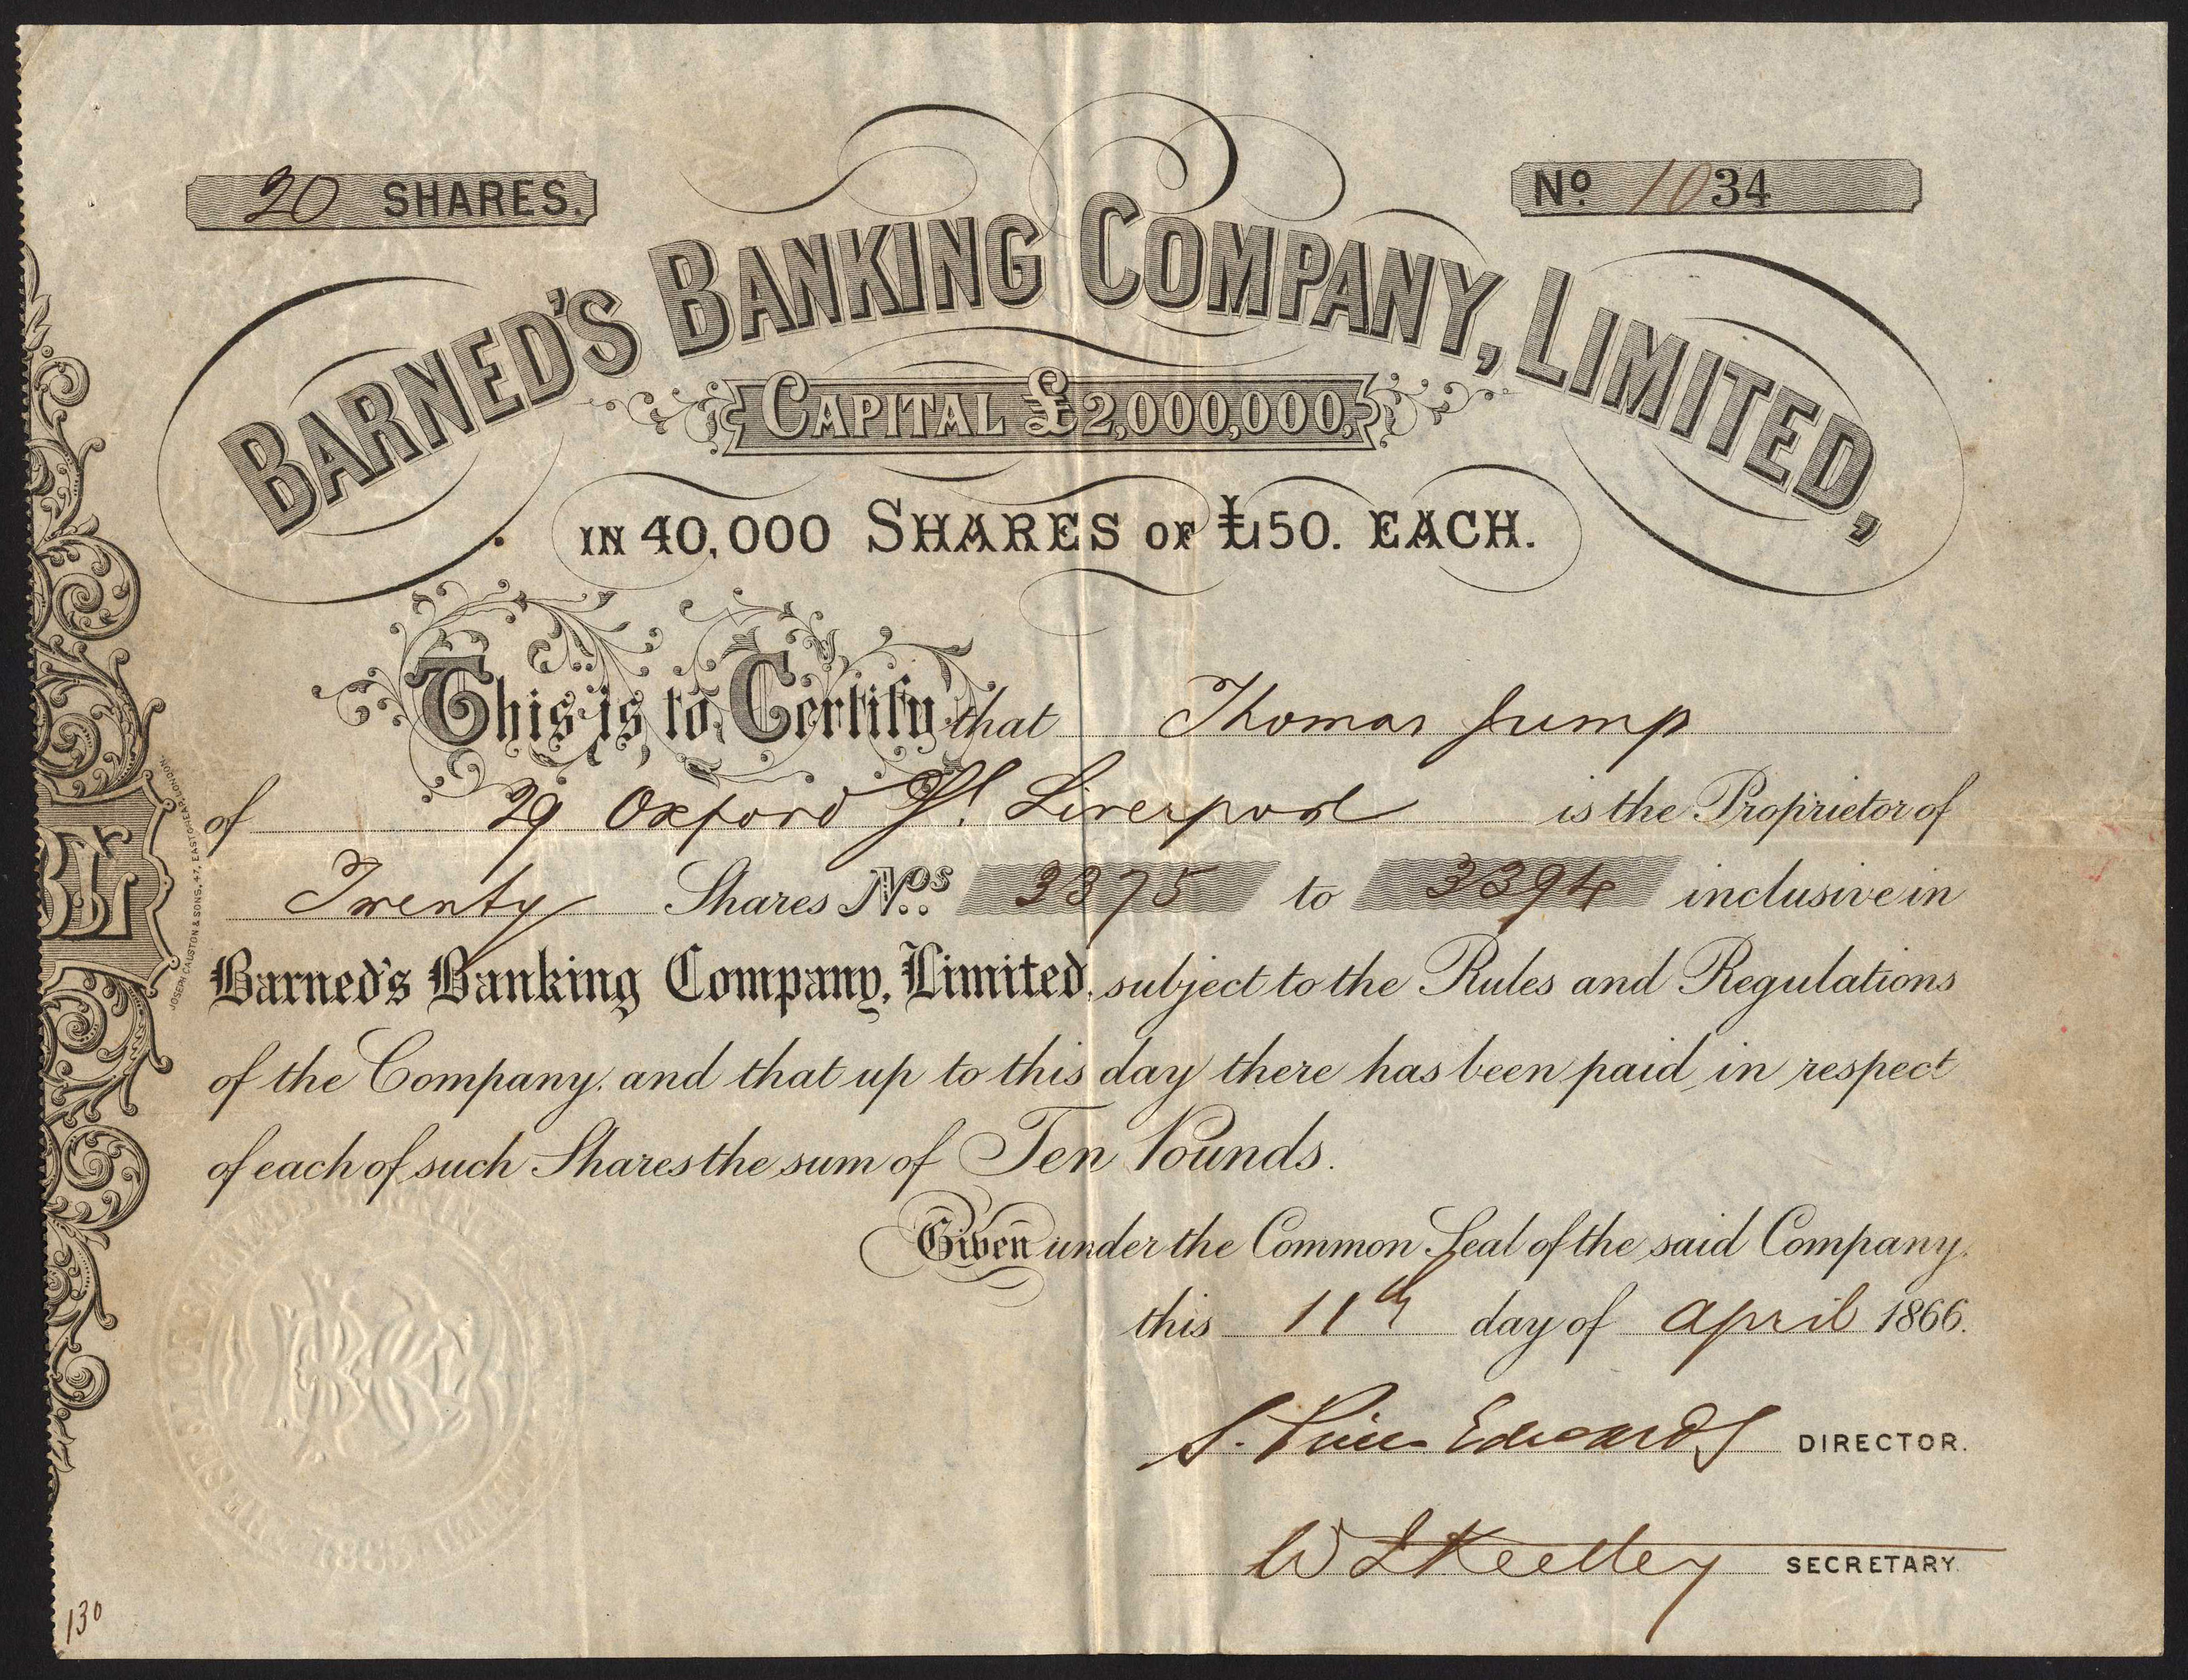 20 SHARES.
Nº 1034
BARNED'S BANKING COMPANY, LIMITED,
CAPITAL £2,000,000,
IN 40,000 SHARES OF £50. EACH.
This is to Certify that Thomas Jump
of 29 Oxford St. Liverpool is the Proprietor of
Twenty Shares Nos. 3375 to 3394 inclusive in
Barned's Banking Company, Limited, subject to the Rules and Regulations
of the Company, and that up to this day there has been paid, in respect
of each of such Shares the sum of Ten Pounds.
Given under the Common Seal of the said Company,
this 11th day of april 1866.
S. Price Edwards DIRECTOR.
SECRETARY.
JOSEPH CAUSTON & SONS, 47, EASTCHEAP, LONDON.
130